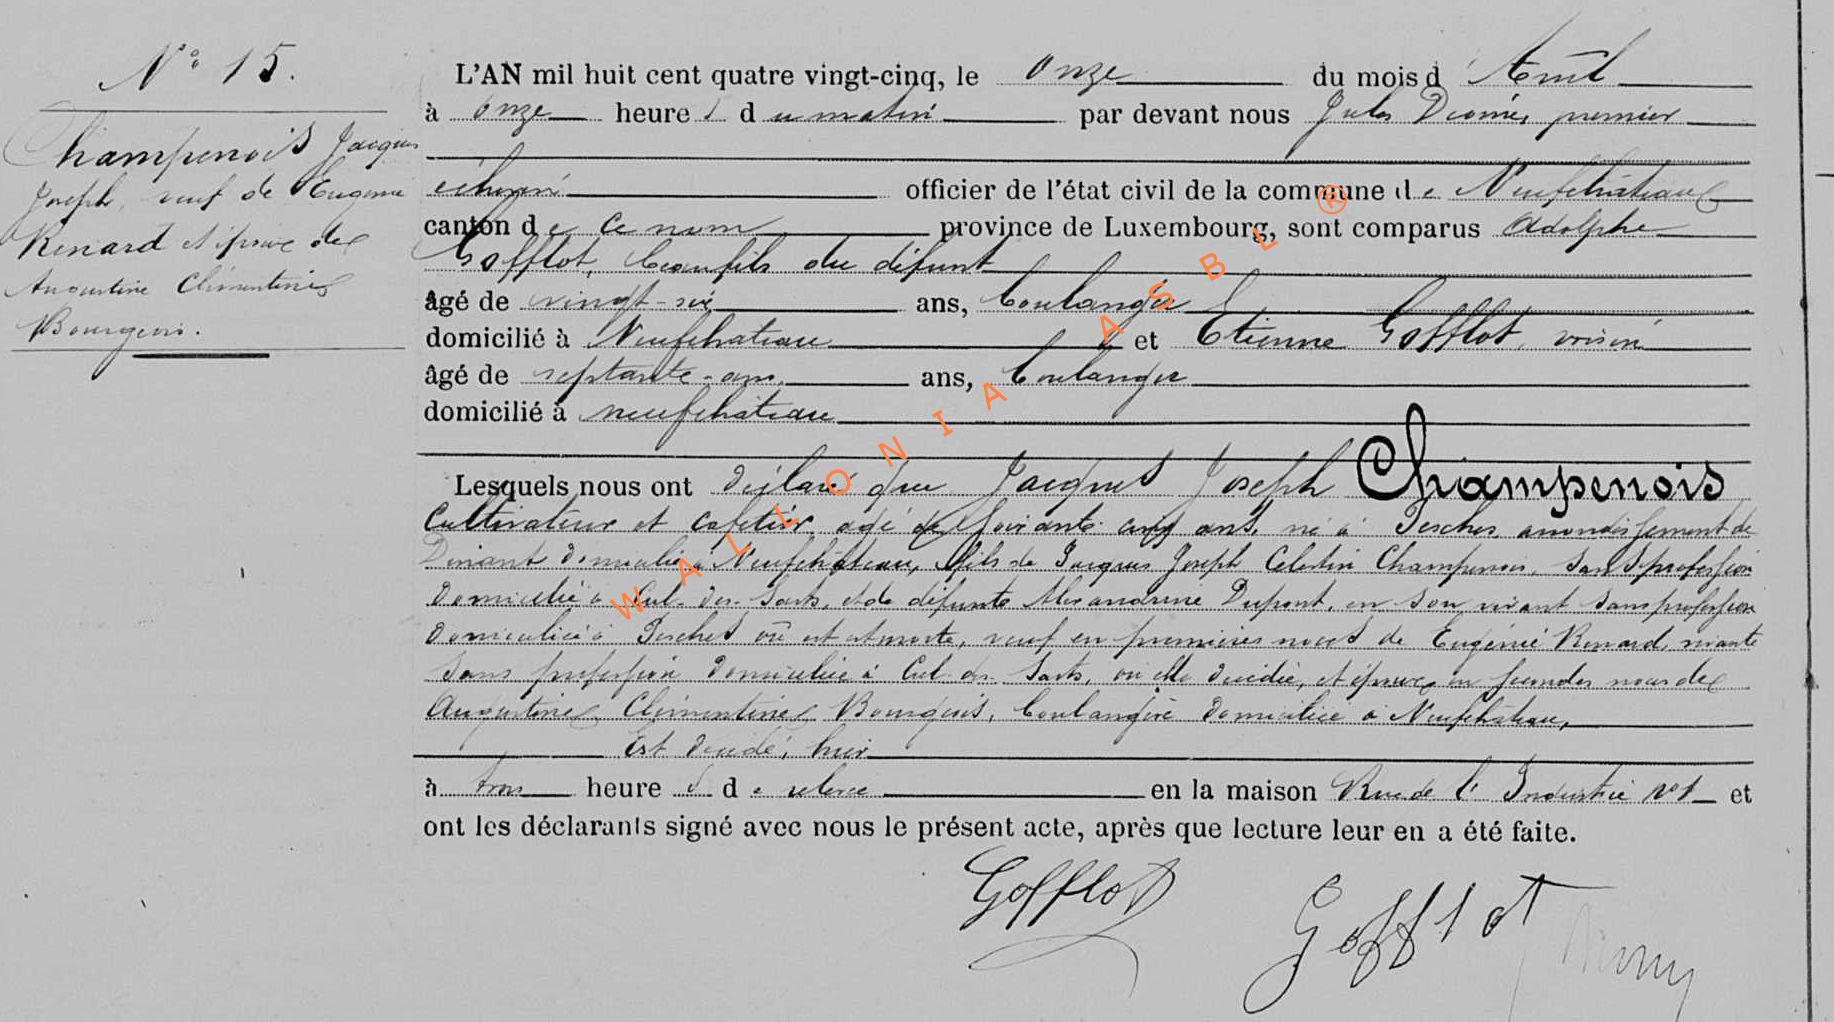 N° 15.
Champenois Jacques
Joseph, veuf de Eugenie
Renard et époux de
Augustine Clémentine
Bourgeois.
L'AN mil huit cent quatre vingt-cinq, le onze du mois d'Avril
à onze heures du matin par devant nous Jules premier
échevin officier de l'état civil de la commune de Neufchâteau
canton de ce nom province de Luxembourg, sont comparus Adolphe
Gofflot, beaufils du défunt
âgé de vingt-six ans, boulanger
domicilié à Neufchateau et Etienne Gofflot, voisin
âgé de septante ans, boulanger
domicilié à neufchâteau
Lesquels nous ont déclaré que Jacques Joseph Champenois
cultivateur et cafetier, agé de soixante cinq ans, né à Pesches arrondissement de
Dinant domicilié à Neufchâteau, fils de Jacques Joseph Célestin Champenois, sans profession
domicilié à Cul-des-Sarts, et de défunte Alexandrine Dupont, en son vivant sans profession
domiciliée à Pesches où est morte, veuf en premières noces de Eugénie Renard, vivante
sans profession domiciliée à Cul-des-Sarts, où elle décédée, et époux en secondes noces de
Augustine Clémentine Bourgeois, boulangère domiciliée à Neufchâteau,
Est décédé, hier
à trois heures de relevée en la maison Rue de l'Industrie n°1 et
ont les déclarants signé avec nous le présent acte, après que lecture leur en a été faite.
Gofflot
Gofflot
WALLONIA ASBL ®